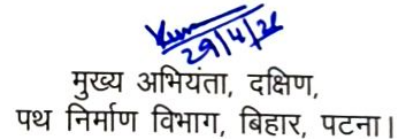 29/4/26
मुख्य अभियंता, दक्षिण,
पथ निर्माण विभाग, बिहार, पटना।